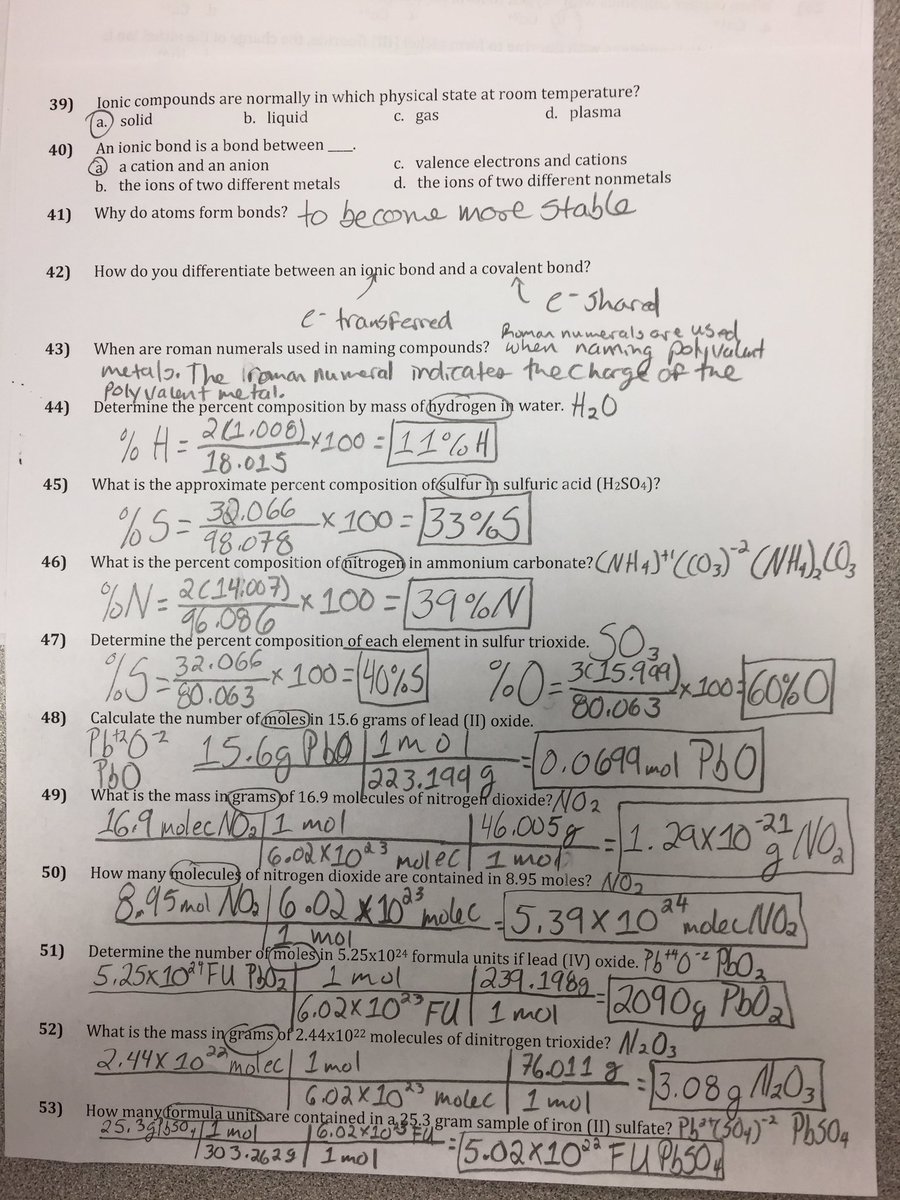 39) Ionic compounds are normally in which physical state at room temperature?
a. solid b. liquid c. gas d. plasma
40) An ionic bond is a bond between ___.
a a cation and an anion c. valence electrons and cations
b. the ions of two different metals d. the ions of two different nonmetals
41) Why do atoms form bonds? to become more stable
42) How do you differentiate between an ionic bond and a covalent bond?
e- transferred e- shared
Roman numerals are used
43) When are roman numerals used in naming compounds? when naming polyvalent
metals. The roman numeral indicates the charge of the
polyvalent metal.
44) Determine the percent composition by mass of hydrogen in water. H2O
% H = 2(1.008)/18.015 x100 = 11% H
45) What is the approximate percent composition of sulfur in sulfuric acid (H2SO4)?
% S = 32.066/98.078 x 100 = 33% S
46) What is the percent composition of nitrogen in ammonium carbonate? (NH4)+1 (CO3)-2 (NH4)2CO3
%N = 2(14.007)/96.086 x 100 = 39% N
47) Determine the percent composition of each element in sulfur trioxide. SO3
%S = 32.066/80.063 x 100 = 40% S %O = 3(15.999)/80.063 x 100 = 60% O
48) Calculate the number of moles in 15.6 grams of lead (II) oxide.
Pb+2O-2 15.6g PbO | 1 mol = 0.0699 mol PbO
PbO 223.199 g
49) What is the mass in grams of 16.9 molecules of nitrogen dioxide? NO2
16.9 molec NO2 | 1 mol | 46.005g = 1.29x10-21 g NO2
6.02x10 23 molec | 1 mol
50) How many molecules of nitrogen dioxide are contained in 8.95 moles? NO2
8.95 mol NO2 | 6.02 x 10 23 molec = 5.39 x 10 24 molec NO2
1 mol
51) Determine the number of moles in 5.25x1024 formula units if lead (IV) oxide. Pb+4O-2 PbO2
5.25x10 24 FU PbO2 | 1 mol | 239.198g = 2090g PbO2
6.02x10 23 FU | 1 mol
52) What is the mass in grams of 2.44x1022 molecules of dinitrogen trioxide? N2O3
2.44x10 22 molec | 1 mol | 76.011 g = 3.08g N2O3
6.02x10 23 molec | 1 mol
53) How many formula units are contained in a 25.3 gram sample of iron (II) sulfate? Pb2+(SO4)-2 PbSO4
25.3g PbSO4 | 1 mol | 6.02x10 23 FU = 5.02x10 22 FU PbSO4
303.262g | 1 mol